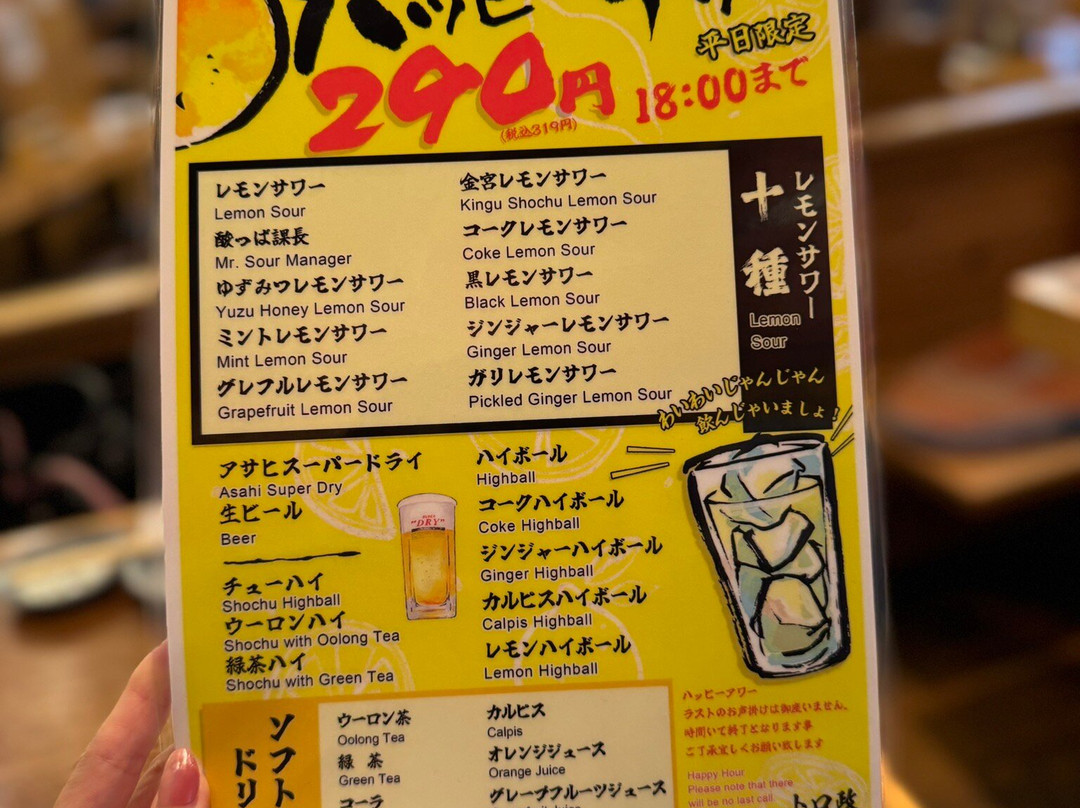 ハッピー
平日限定
290円
(税込319円)
18:00まで
レモンサワー
十種
Lemon
Sour
レモンサワー
Lemon Sour
酸っぱ課長
Mr. Sour Manager
ゆずみつレモンサワー
Yuzu Honey Lemon Sour
ミントレモンサワー
Mint Lemon Sour
グレフルレモンサワー
Grapefruit Lemon Sour
金宮レモンサワー
Kingu Shochu Lemon Sour
コークレモンサワー
Coke Lemon Sour
黒レモンサワー
Black Lemon Sour
ジンジャーレモンサワー
Ginger Lemon Sour
ガリレモンサワー
Pickled Ginger Lemon Sour
わいわいじゃんじゃん
飲んじゃいましょ!
アサヒスーパードライ
Asahi Super Dry
生ビール
Beer
"DRY"
チューハイ
Shochu Highball
ウーロンハイ
Shochu with Oolong Tea
緑茶ハイ
Shochu with Green Tea
ハイボール
Highball
コークハイボール
Coke Highball
ジンジャーハイボール
Ginger Highball
カルピスハイボール
Calpis Highball
レモンハイボール
Lemon Highball
ソフト
ドリ
ウーロン茶
Oolong Tea
緑茶
Green Tea
コーラ
カルピス
Calpis
オレンジジュース
Orange Juice
グレープフルーツジュース
ハッピーアワー
ラストのお声掛けは御座いません。
時間いて終了となります事
ご了承宜しくお願い致します
Happy Hour
Please note that there
will be no last call.